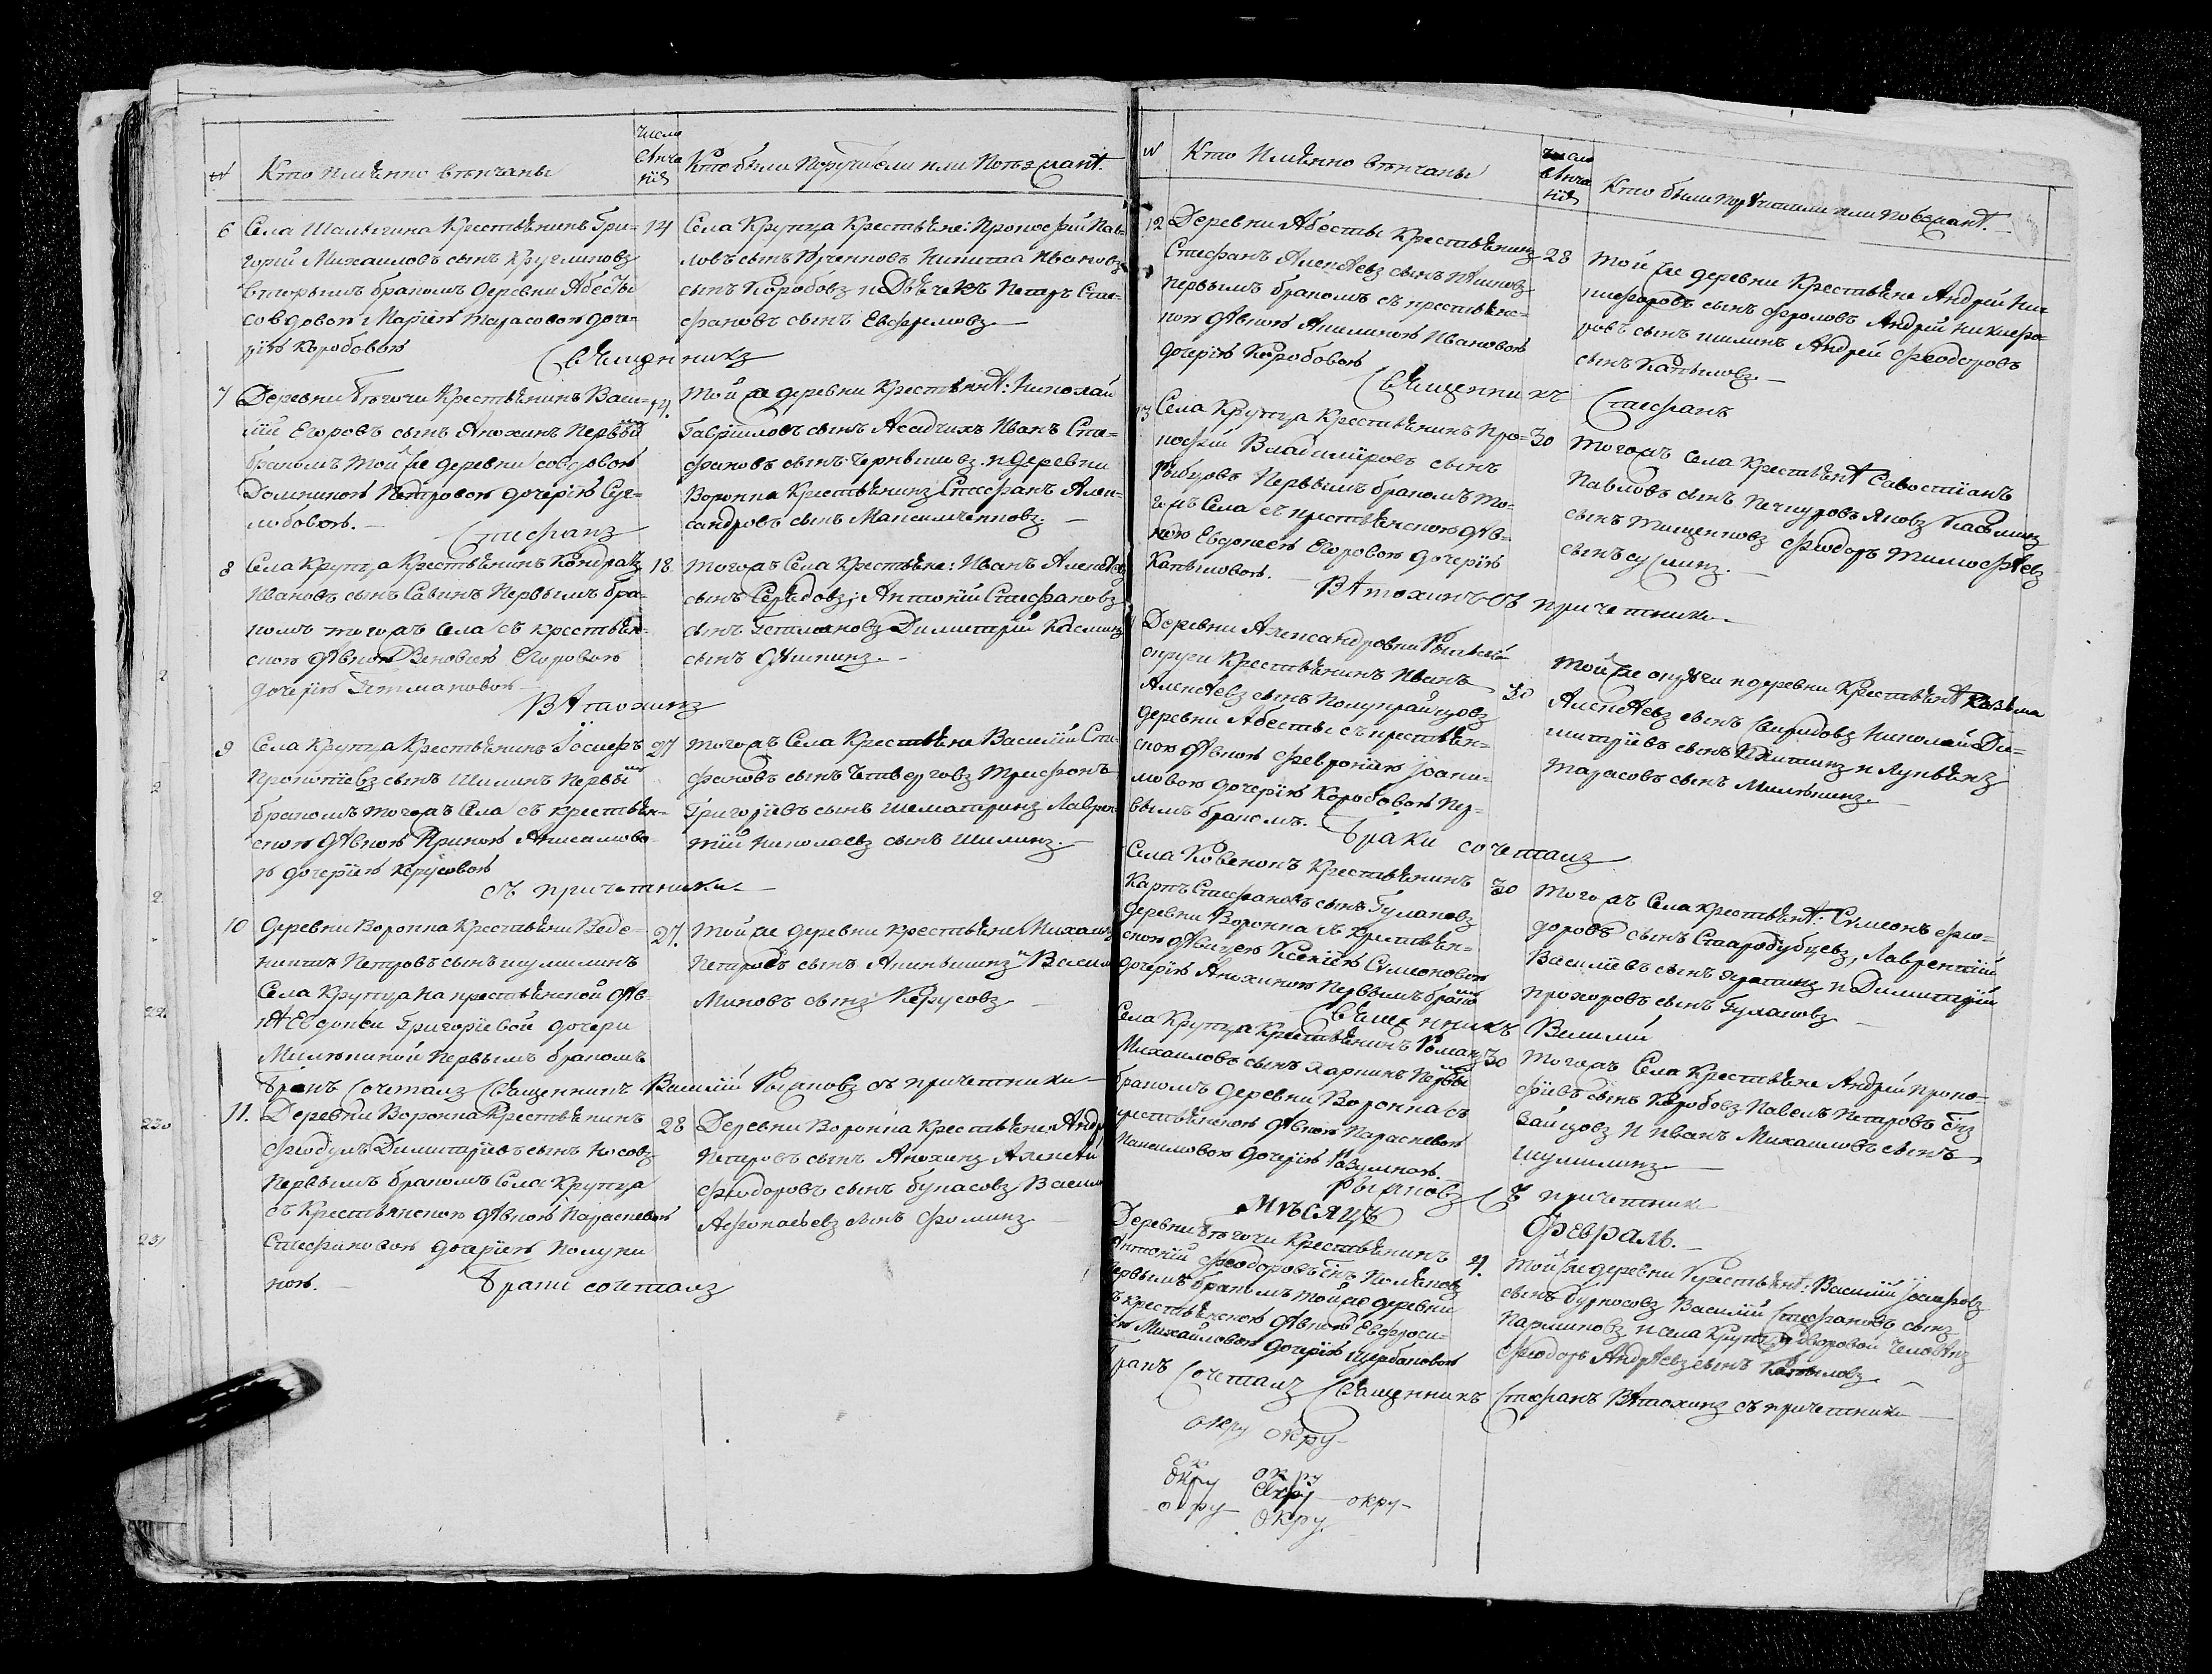 № Кто Именно венчаны
числа венчания
Кто были Поручители или Поезжанѣ.
6 Села Шалыгина Крестьянинъ Гри-
горий Михаиловъ сынъ Кругликовъ
вторымъ бракомъ деревни Абесты
со вдовою Мариею Тарасовою доче-
рию Коробовою
14 Села Крупца Крестьяне: Прокофий Пав-
ловъ сынъ Никита Ивановъ
сынъ Коробовъ Петръ Сте-
фановъ сынъ Евфремовъ
Священникъ
7 Деревни Крестьянинъ Васи-
лий Егоровъ сынъ Анохинъ первымъ
бракомъ той же деревни со вдовою
Домникою Петровою дочерию Суг-
любовою.
14. Той же деревни Крестьянѣ: Николай
Гавриловъ сынъ Асадчихъ Иванъ Сте-
фановъ сынъ Чернышовъ и деревни
Воронка Крестьянинъ Стефанъ Алек-
сандровъ сынъ Максимченковъ
Стефанъ
8 Села Крупца Крестьянинъ Кондратъ
Ивановъ сынъ Савинъ Первымъ бра-
комъ тогожъ Села съ крестьян-
скою дѣвкою Егоровою
дочерию Гетмановою
18 тогожъ Села Крестьяне: Иванъ Алексѣевъ
сынъ Середовъ; Антоний Стефановъ
сынъ Гетмановъ Димитрий Касминъ
сынъ
Вѣтохинъ
9 Села Крупца Крестьянинъ Иосифъ
Прокопиевъ сынъ Шилинъ Первымъ
бракомъ тогожъ Села съ крестьян-
скою дѣвкою Ириною Анисимово-
ю дочерию Керусовою
27 тогожъ Села Крестьяне Василий Сте-
фановъ сынъ Четверговъ Трифонъ
Григориевъ сынъ Шематринъ Лаврен-
тий Николаевъ сынъ Шилинъ
съ причетники
10 Деревни Воронка Крестьянинъ Веде-
Петровъ сынъ шумилинъ
Села Крупца на крестьянской дѣв-
кѣ Евдокеи Григориевой дочери
Милюкиной первымъ бракомъ
27. Той же деревни Крестьяне Михаилъ
Петровъ сынъ Анкинъ и
сынъ Керусовъ
Бракъ сочеталъ Священникъ Василий Рыжковъ съ причетники
11. Деревни Воронка Крестьянинъ
Феодулъ Димитриевъ сынъ Носовъ
Первымъ бракомъ Села Крупца
съ Крестьянскою дѣвкою Параскевою
Стефановою дочерию Полуни
ною.
28 Деревни Воронка Крестьяне Андр
Петровъ сынъ Анохинъ Алексѣй
Феодоровъ сынъ Букасовъ
Афонасьевъ сынъ Фоминъ
Браки сочеталъ
№ Кто Именно венчаны
числа венчания
Кто были поручители или поезжанѣ.
12 Деревни Абесты Крестьянинъ
Стефанъ Алексѣевъ сынъ
первымъ бракомъ съ крестьянс-
кою дѣвкою Акилиною Ивановою
дочерию Коробовою
28 Той же деревни Крестьяне Андрей Ни-
кифоровъ сынъ Фроловъ Андрей Никифо-
ровъ сынъ шилинъ Андрей Феодоровъ
сынъ Капыловъ
Священникъ Стефанъ
13 Села Крупца Крестьянинъ Про-
кофий Владимировъ сынъ
Рыбцовъ Первымъ бракомъ то-
гожъ Села съ крестьянскою дѣв-
кою Евдокиею Егоровою дочерию
Капыловою.
30 Тогожъ Села крестьянѣ Савостианъ
Павловъ сынъ Печкуровъ Яковъ
сынъ Тищенковъ Феодоръ Тимофѣевъ
сынъ суслинъ.
Вѣтохинъ съ причетники
Деревни Александровки Рыльской
округи Крестьянинъ Иванъ
Алексѣевъ сынъ
деревни Абесты съ крестьян-
скою дѣвкою Феврониею Иоаки-
мовою дочерию Коробовою пер-
вымъ бракомъ.
30 Той же округи и деревни Крестьянѣ Козьма
Алексѣевъ сынъ Свиридовъ Николай Ди-
митриевъ сынъ Никитинъ и Лукьянъ
Тарасовъ сынъ Милюкинъ.
Браки сочеталъ
Села Ковенокъ Крестьянинъ
Карпъ Стефановъ сынъ Гулаковъ
деревни Воронка съ крестьян-
скою дѣвицею Ксениею Симеоновою
дочерию Анохиною первымъ бракомъ
30 Тогожъ Села крестьянѣ: Симеонъ Фео-
доровъ сынъ Стародубцевъ, Лаврентий
Василиевъ сынъ и Димитрий
прохоровъ сынъ Гулаковъ
Священникъ Василий
Села Крупца Крестьянинъ Романъ
Михаиловъ сынъ Харкинъ первымъ
бракомъ деревни Воронка съ
крестьянскою дѣвкою Параскевою
Максимовою дочерию Разумною.
30 тогожъ Села Крестьяне Андрей Проко-
фиевъ сынъ Коробовъ Павелъ Петровъ
Зайцовъ и иванъ Михаиловъ сынъ
шумилинъ
Рыжковъ съ причетники
Мѣсяцъ Февраль.
Деревни Крестьянинъ
Антоний Феодоровъ
первымъ бракомъ той же деревни
съ крестьянскою дѣвкою Евфроси-
ею Михайловою дочерию Щербаковою
4. Той же деревни Крестьянѣ: Василий Иосифовъ
сынъ бурносовъ Василий Стефановъ сынъ
Парминовъ и села Крупца дворовой человѣкъ
Феодоръ Андрѣевъ сынъ Капыловъ
Бракъ Сочеталъ Священникъ Стефанъ Вѣтохинъ съ причетники
окру окру
окру окру
окру окру окру
окру